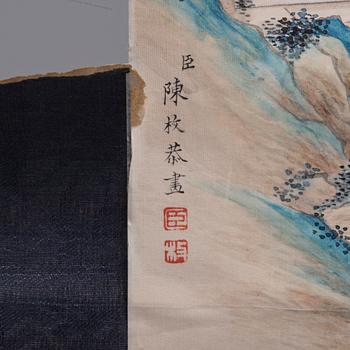 臣
陳枚恭畫
臣
枚